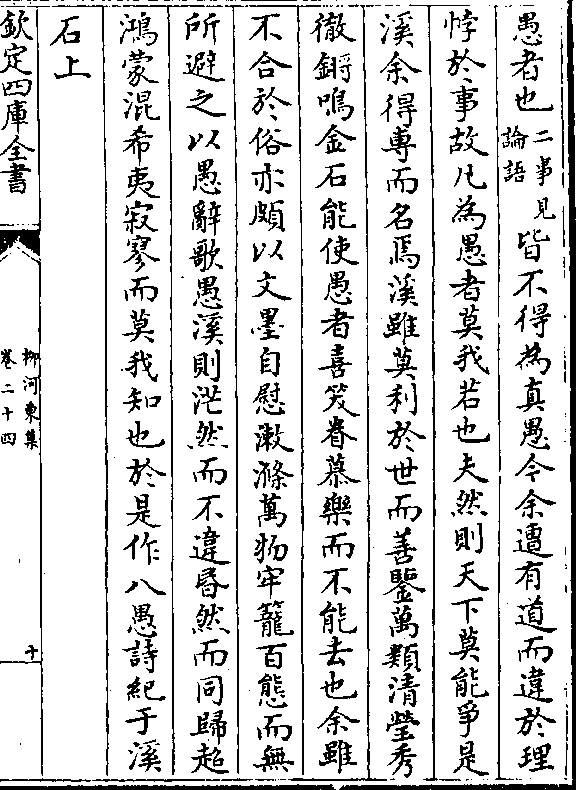 愚者也二事見論語皆不得為真愚今余遭有道而違於理
悖於事故凡為愚者莫我若也夫然則天下莫能爭是
溪余得專而名焉溪雖莫利於世而善鑒萬類清瑩秀
徹鏘鳴金石能使愚者喜笑眷慕樂而不能去也余雖
不合於俗亦頗以文墨自慰漱滌萬物牢籠百態而無
所避之以愚辭歌愚溪則茫然而不違昬然而同歸超
鴻蒙混希夷寂寥而莫我知也於是作八愚詩紀于溪
石上
欽定四庫全書
柳河東集
卷二十四
十